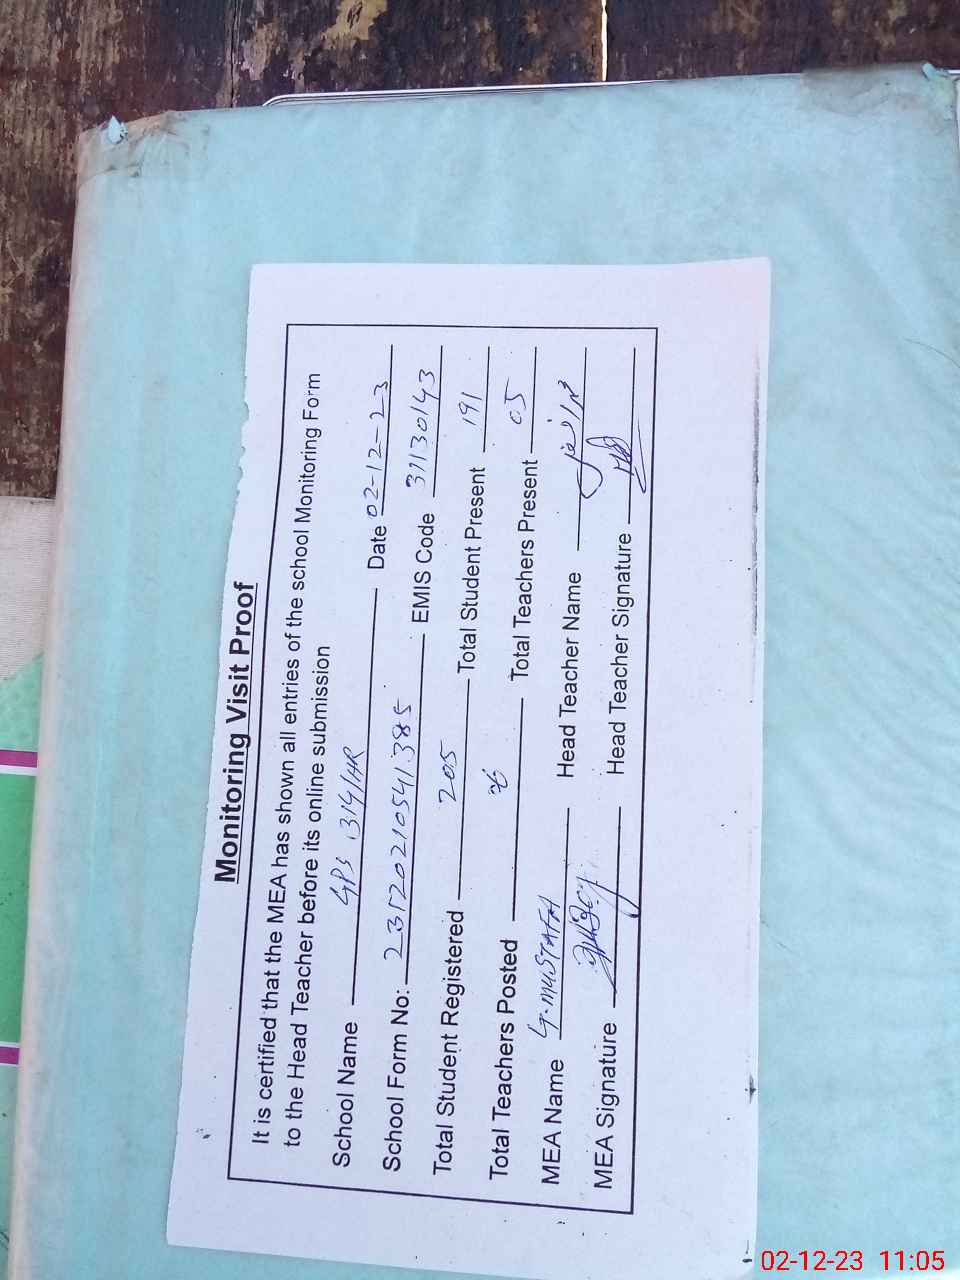 Monitoring Visit Proof
It is certified that the MEA has shown all entries of the school Monitoring Form
to the Head Teacher before its online submission
School Name GPS 314/HR Date 02-12-23
School Form No: 23120210541385 EMIS Code 31130143
Total Student Registered 205 Total Student Present 191
Total Teachers Posted Total Teachers Present 05
MEA Name G.MUSTAFA Head Teacher Name
MEA Signature Head Teacher Signature
02-12-23 11:05